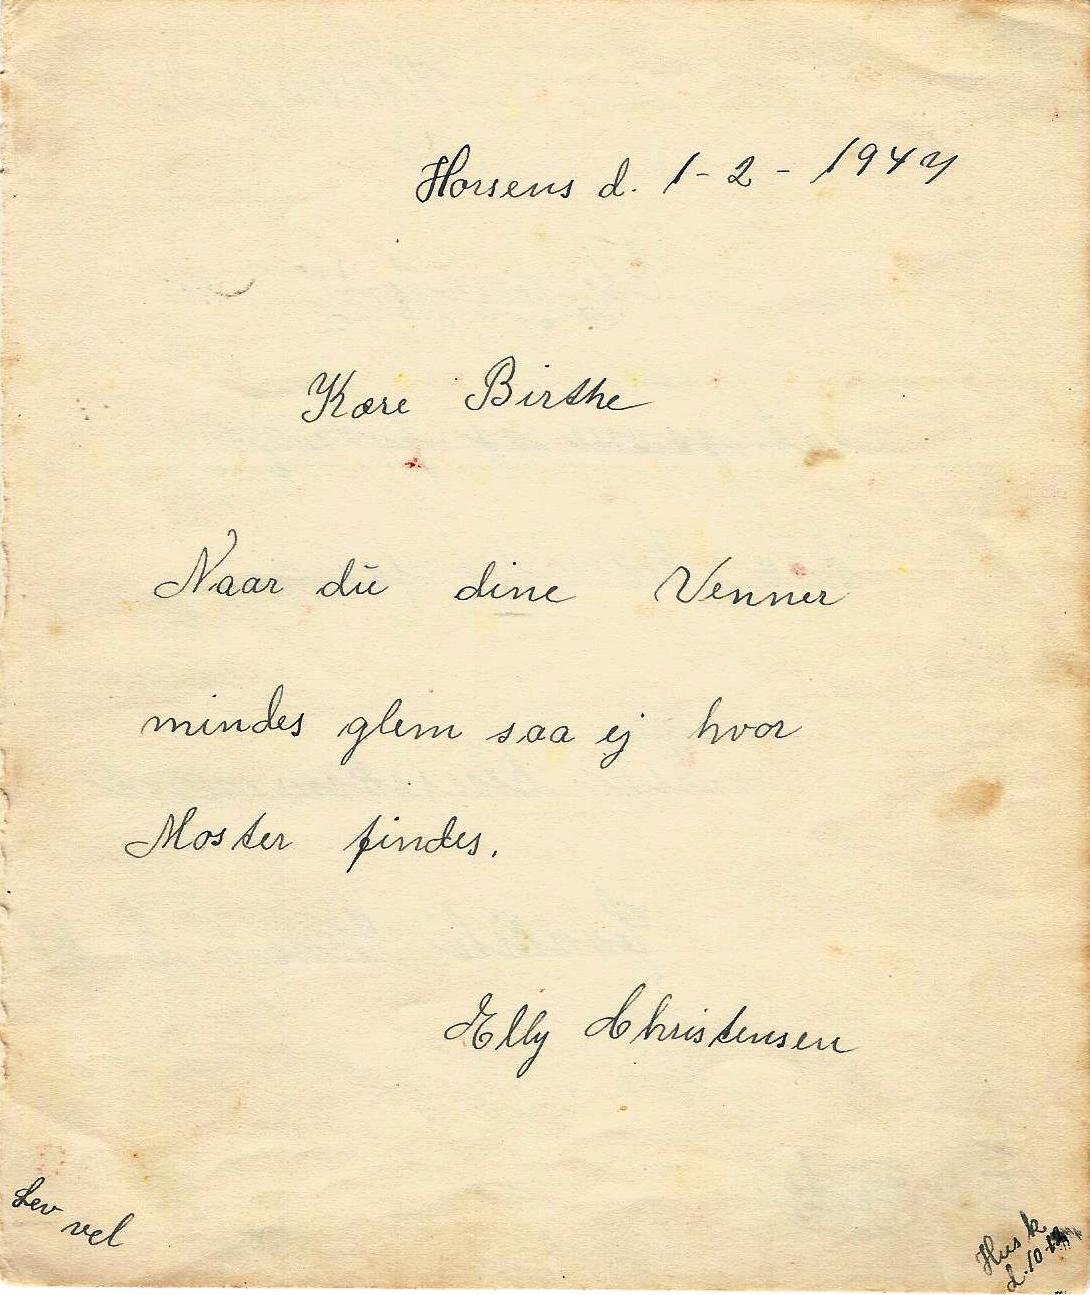 Horsens d. 1-2-1944
Kære Birthe
Naar du dine Venner
mindes glem saa ej hvor
Moster findes.
Elly Christensen
Lev
vel
Husk
d. 10-12